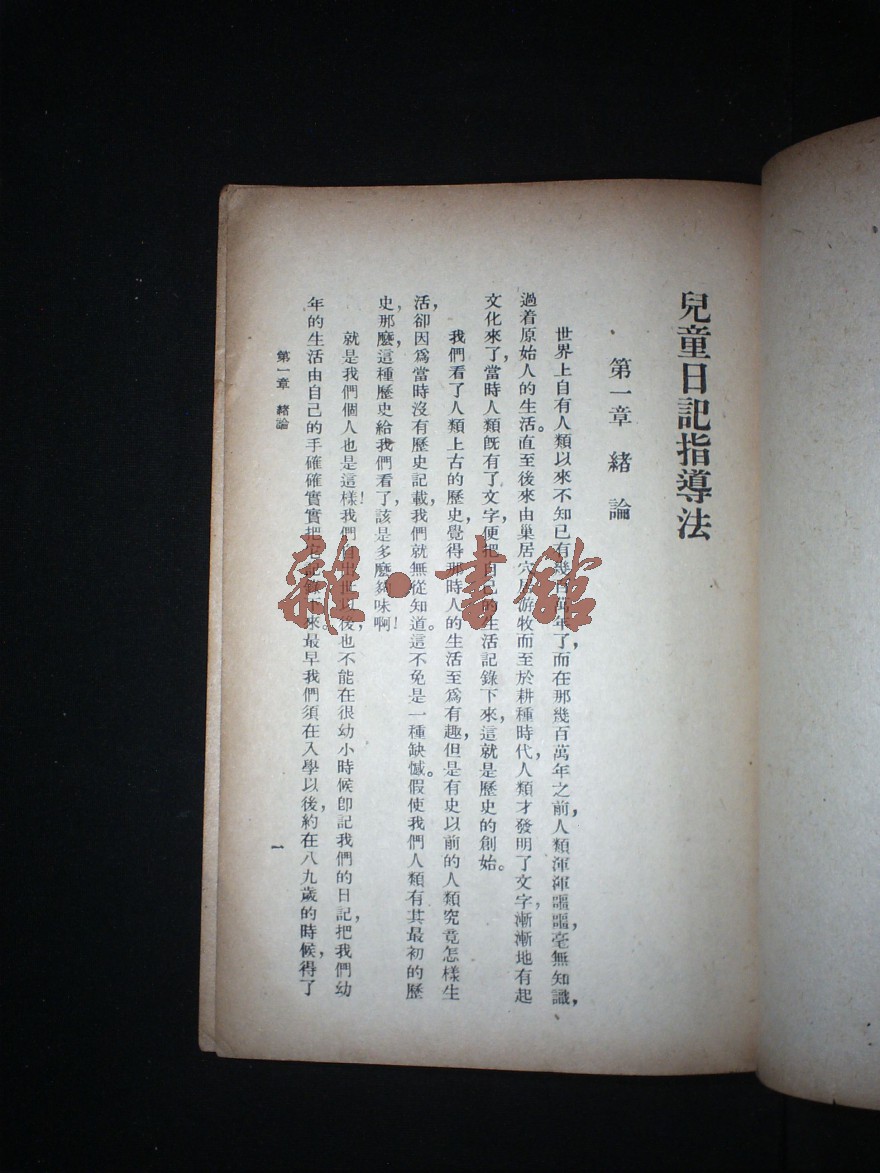 兒童日記指導法
第一章 緒論
世界上自有人類以來不知已有幾百萬年了，而在那幾百萬年之前，人類渾渾噩噩，毫無知識，
過着原始人的生活。直至後來由巢居穴居游牧而至於耕種時代，人類才發明了文字，漸漸地有起
文化來了，當時人類旣有了文字，便把自己的生活記錄下來，這就是歷史的創始。
我們看了人類上古的歷史，覺得那時人的生活至爲有趣，但是有史以前的人類究竟怎樣生
活，卻因爲當時沒有歷史記載，我們就無從知道。這不免是一種缺憾。假使我們人類有其最初的歷
史，那麽，這種歷史給我們看了，該是多麽夠味啊！
就是我們個人也是這樣！我們自出世以後，也不能在很幼小時候卽記我們的日記，把我們幼
年的生活由自己的手確確實實把它記錄下來。最早我們須在入學以後，約在八九歲的時候，得了
第一章 緒論
一
雜·書館